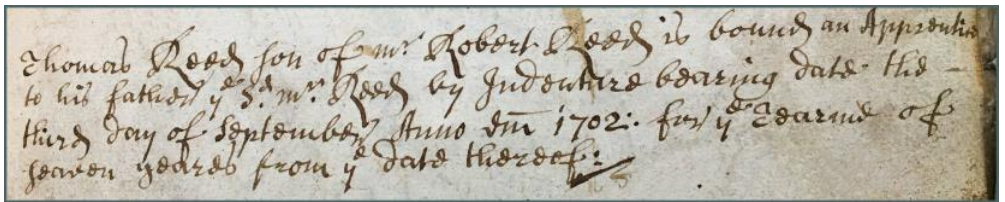 Thomas Reed son of mr. Robert Reed is bound an Apprentice
to his father ye sd. mr. Reed by Indenture bearing date the -
third day of September Anno Dm 1702: for ye Tearme of
seaven yeares from ye date thereof: